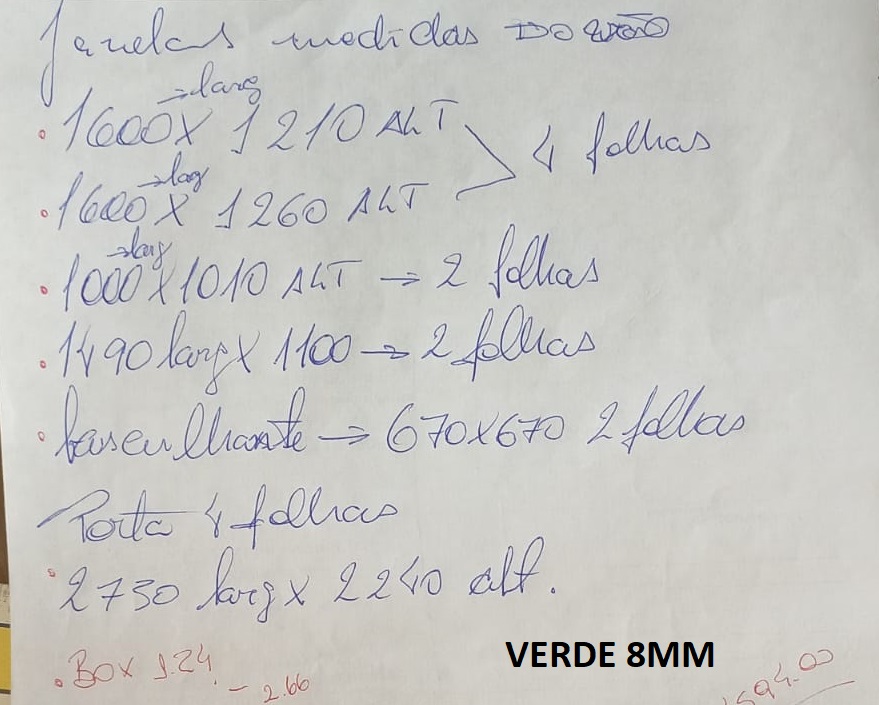 Janelas medidas DO VÃO
• 1600 → larg X 1210 ALT
• 1600 → larg X 1260 ALT > 4 folhas
• 1000 → larg X 1010 ALT → 2 folhas
• 1490 larg X 1100 → 2 folhas
• basculhante → 670x670 2 folhas
Porta 4 folhas
• 2730 larg x 2240 alt.
• BOX 1.24. – 2.66
VERDE 8MM